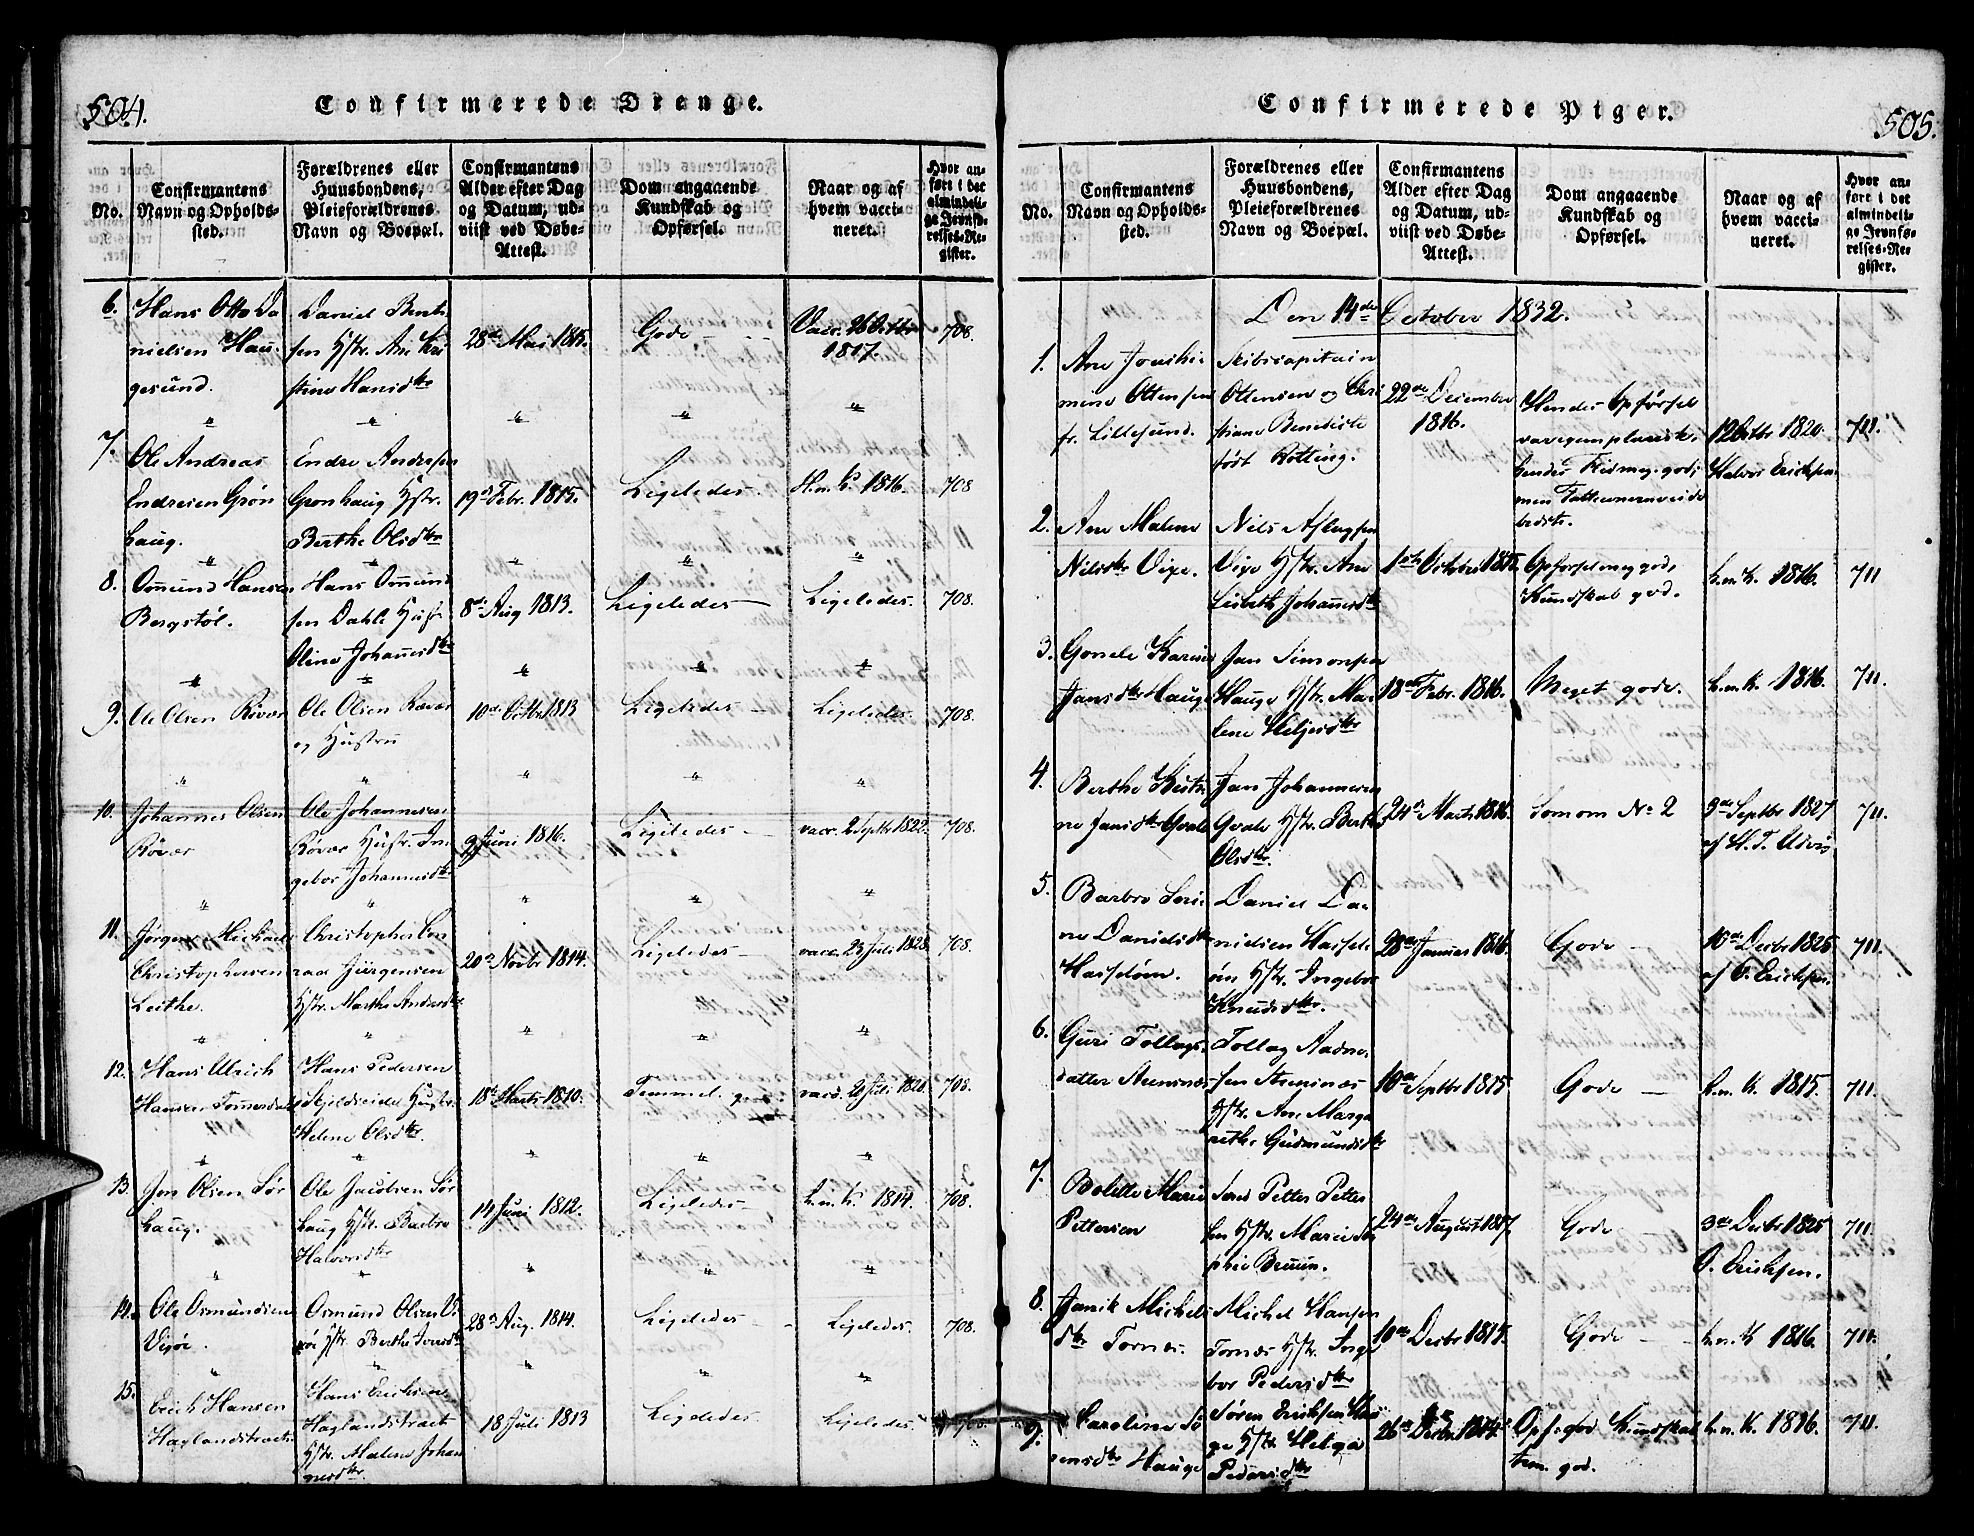 504.
Confirmerede Drenge.
No.
Confirmantens
Navn og Opholds-
sted.
Forældrenes eller
Huusbondens,
Pleieforældrenes
Navn og Boepæl.
Confirmantens
Alder efter Dag
og Datum, ud-
viist ved Døbe-
Attest.
Dom angaaende
Kundskab og
Opførsel.
Naar og af
hvem vacci-
neret.
Hvor an-
ført i det
almindeli-
ge Jevnfø-
relses-Re-
gister.
6.
Hans Otto Da
nielsen Hau-
gesund.
Daniel Bent
sen Hstr. Ane Kri
stine Hansdtr
28de Mai 1815.
Gode
Vacc. 26 Octbr
1817.
708.
7.
Ole Andreas
Endresen Grøn
haug.
Endre Andersen
Grønhaug Hstr.
Berthe Olsdtr
19de Febr. 1815.
Ligeledes.
H.n.K. 1816.
708
8.
Omund Hansen
Bergstøl.
Hans Omund
sen Dahle Hustr
Oline Johannesdtr
8de Aug 1813.
Ligeledes
Ligeledes.
708.
9.
Ole Olsen Røvær
Ole Olsen Røvær
og Hustru
10de Octbr 1813
Ligeledes
Ligeledes.
708.
10.
Johannes Olsen
Røvær
Ole Johannesen
Røvær Hustr. In
gebor Johannesdtr
9 Juni 1816.
Ligeledes
vacc. 2 Septbr 1822.
708.
11.
Jørgen Michael
Christophersen
Leithe.
Christopher Con
rad Jürgensen
Hstr. Marthe Andersdtr
20de Novbr 1814.
Ligeledes
vacc. 23 Juli 1828.
708.
12.
Hans Ulrich
Hansen Tommerdal
Hans Pedersen
Skjeldreidet Hustr.
Helene Olsdtr.
18de Marts 1810.
Temmel. gode
vacc. 2 Juli 1820.
708.
13.
Jon Olsen Sør
haug.
Ole Jacobsen Sør
haug Hstr. Barbro
Halvorsdtr
14 Juni 1812.
Ligeledes
h.n.K. 1814.
708.
14.
Ole Osmundsen
Vibrøi.
Osmund Olsen Vi
røi Hstr. Berthe Iversdtr
28de Aug. 1814.
Ligeledes
Ligeledes.
708.
15.
Erich Hansen
Haglandstræt
Hans Erichsen
Haglandstræet
Hstr. Malene Johan
nesdtr.
18 Juli 1813
Ligeledes
Ligeledes
708.
505.
Confirmerede Piger.
No.
Confirmantens
Navn og Opholds-
sted.
Forældrenes eller
Huusbondens,
Pleieforældrenes
Navn og Boepæl.
Confirmantens
Alder efter Dag
og Datum, ud-
viist ved Døbe-
Attest.
Dom angaaende
Kundskab og
Opførsel.
Naar og af
hvem vacci-
neret.
Hvor an-
ført i det
almindeli-
ge Jevnfø-
relses-Re-
gister.
Den 14de October 1832.
1.
Ane Joachi
mine Ottensen
fr. Lillesund.
Skibscapitain
Ottensen og Chri
stiane Benedicte
født Rotting.
22de December
1816.
Hendes Opførsel
var exemplarisk,
hendes Kidsm. god,
men Fatteevnen var ikke
bedste.
12 Octbr 1820.
Halvor Erichsen
711.
2.
Ane Malene
Nilsdtr Vixe.
Nils Aslagsen
Vixe Hstr. Ane
Lisbeth Johannesdtr
1ste October 1815.
Opførsel meg. god,
Kundskab god.
h.n.K. 1816.
711
3.
Gonele Karine
Jansdtr Hauge
Jan Simonsen
Hauge Hstr. Ma-
lene Heljesdtr
18de Febr. 1816.
Meget gode.
h.n.K. 1816.
711.
4.
Berthe Kisti
ne Jansdtr Gvale
Jan Johannesen
Gvale Hstr. Berthe
Olsdtr.
24de Marts 1816.
Som om No 2
9de Septbr 1827
af H. T. Udvig
711.
5.
Barbro Seri
ne Danielsdtr
Hasseløen.
Daniel Da-
nielsen Hassel-
øen Hstr. Ingebor
Knudsdtr.
28de Januar 1816.
Gode
10de Decbr 1825
af O. Erichsen.
711.
6.
Guri Tollags-
datter Stensnæs
Tollag Aadne-
sen Stensnæs
Hstr. Ane Marga
rethe Gudmundsdtr
10de Septbr 1815
Gode
h.n.K. 1815.
711.
7.
Bolette Marie
Pettersen
Sør. Petter Petter
sen Hstr. Marie So
phie Bruun.
24de August 1817.
Gode
3de Decbr 1825
O. Erichsen.
711.
8.
Janik Michels
dtr Tornæs.
Michel Hansen
Tornæs Hstr. Inge
bor Pedersdtr
10de Decbr 1815.
Gode
h.n.K 1816.
711.
9.
Caroline Sø
rensdtr Hauge
Søren Erichsen Hau
ge Hstr. Helga
Pedersdtr
26de Decbr 1814.
Opf. god Kundskab
tem. god.
h.n.K. 1816.
711.